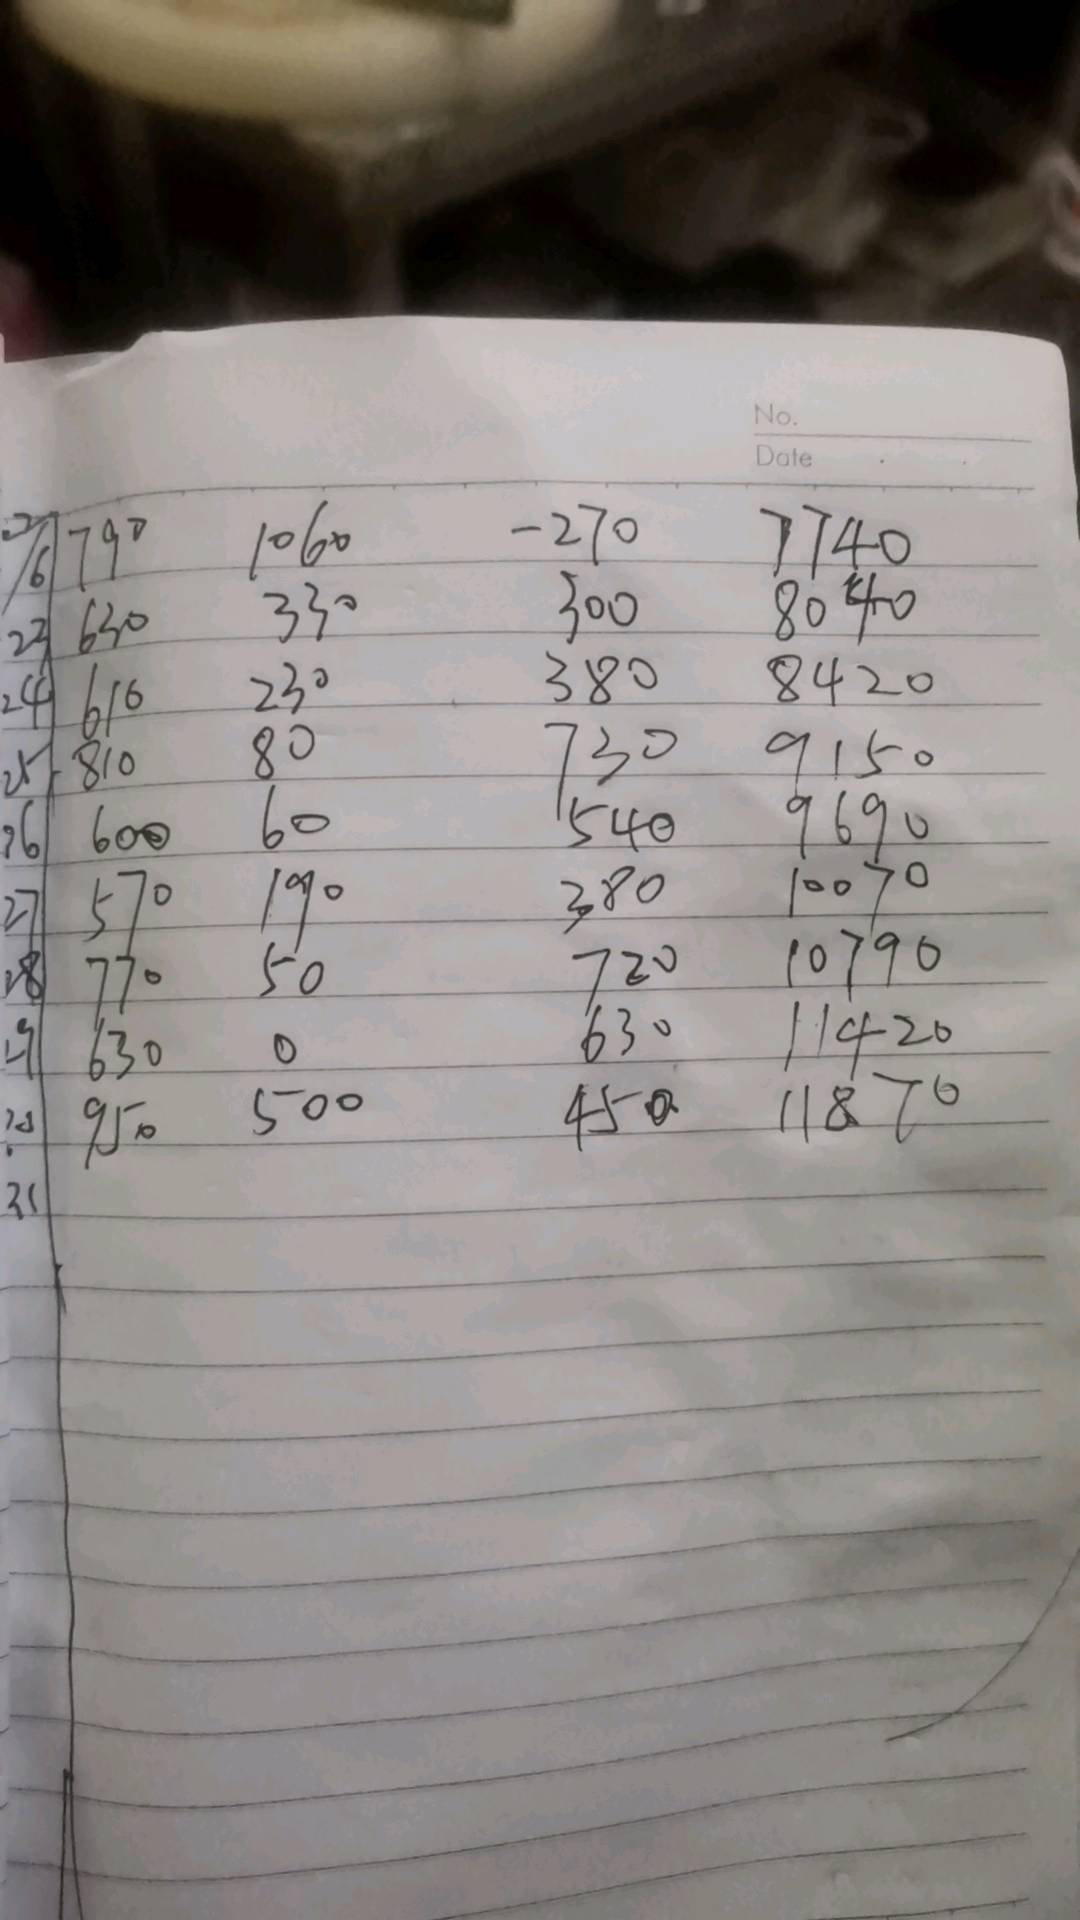 No.
Date
22/6 790 1060 -270 7740
23 630 330 300 8040
24 610 230 380 8420
25 810 80 730 9150
26 600 60 540 9690
27 570 190 380 10070
28 770 50 720 10790
29 630 0 630 11420
30 950 500 450 11870
31